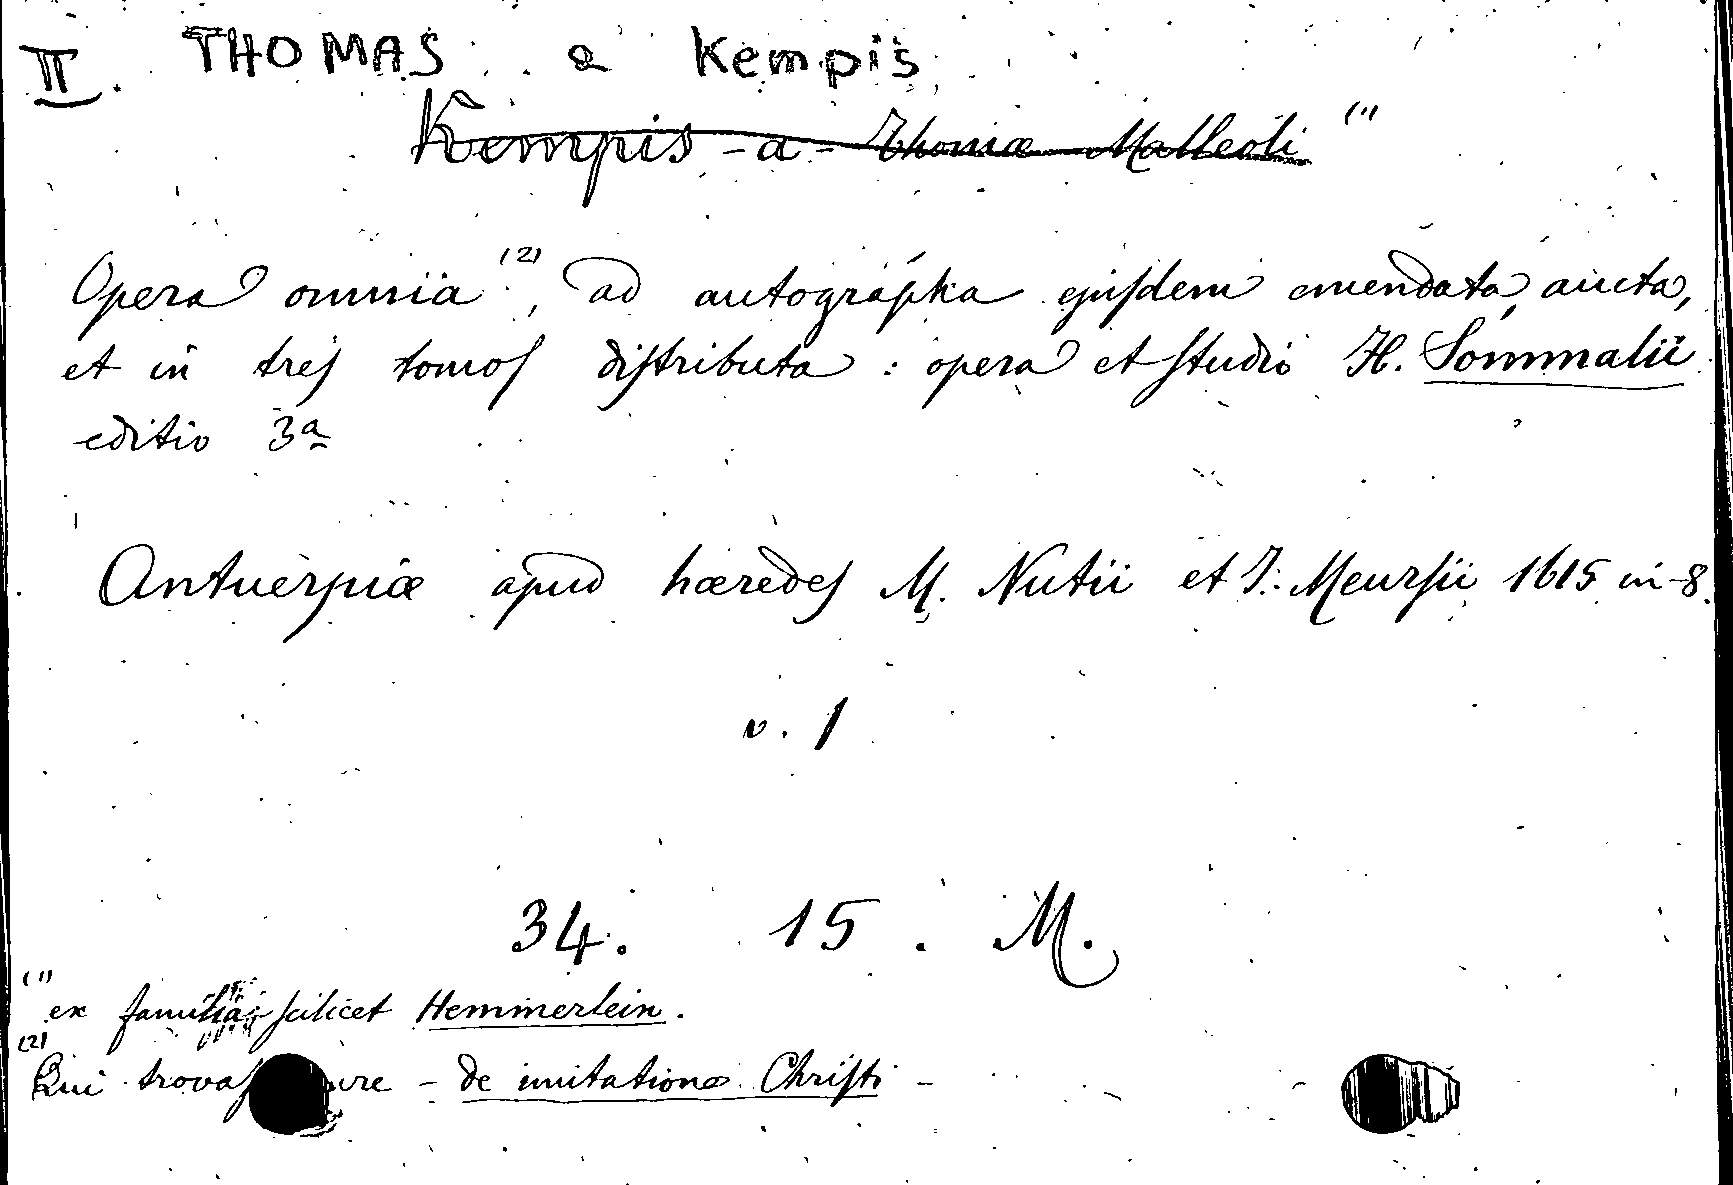 II. THOMAS a Kempis
Kempis - a - Thomæ Malleoli (1)
Opera omnia (2), ad autographa ejusdem emendata, aucta,
et in tres tomos distributa : opera et studio H. Sommalii
editio 3a
Antuerpiæ apud hæredes M. Nutii et J. Meursii 1615 in-8.
v. 1
34. 15. M.
(1) ex familia scilicet Hemmerlein.
(2) Qui trovas ure - de imitatione Christi -